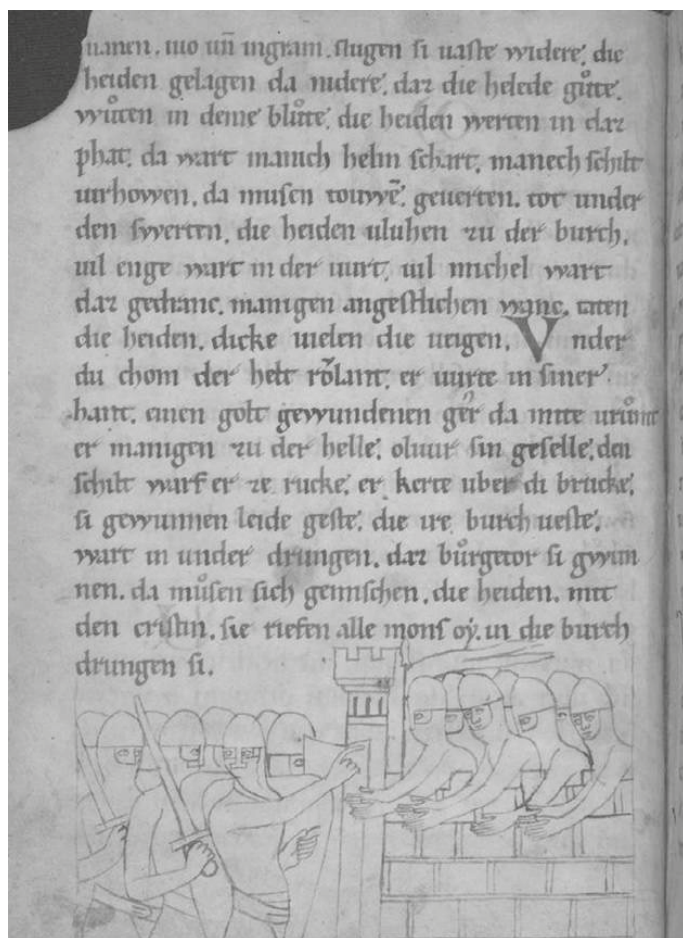 uanen. iuo uñ ingram. ſlugen ſi uaſte widere; die
heiden gelagen da nidere; daz die helede gůte;
wůten in deme blůte; die heiden werten in daz
phat; da wart manich helm ſchart; manech ſchilt
uirhowen. da muſen touwē; geuerten. tot under
den ſwerten; die heiden uluhen zu der burch.
uil enge wart in der uurt; uil michel wart
daz gedranc. manigen angeſtlichen wanc. taten
die heiden. dicke uielen die ueigen. Vnder
du chom der helt rǒlant; er uurte in ſiner
hant. einen golt gewundenen ger da mite urůmt
er manigen zu der helle; oliuir ſin geſelle; den
ſchilt warf er ze rucke; er kerte uber di brucke;
ſi gewunnen leide geſte; die ire burch ueſte;
wart in under drungen. daz bůrgetor ſi gwun
nen. da můſen ſich gemiſchen. die heiden. mit
den criſtin. ſie riefen alle monſ oẏ. in die burch
drungen ſi.